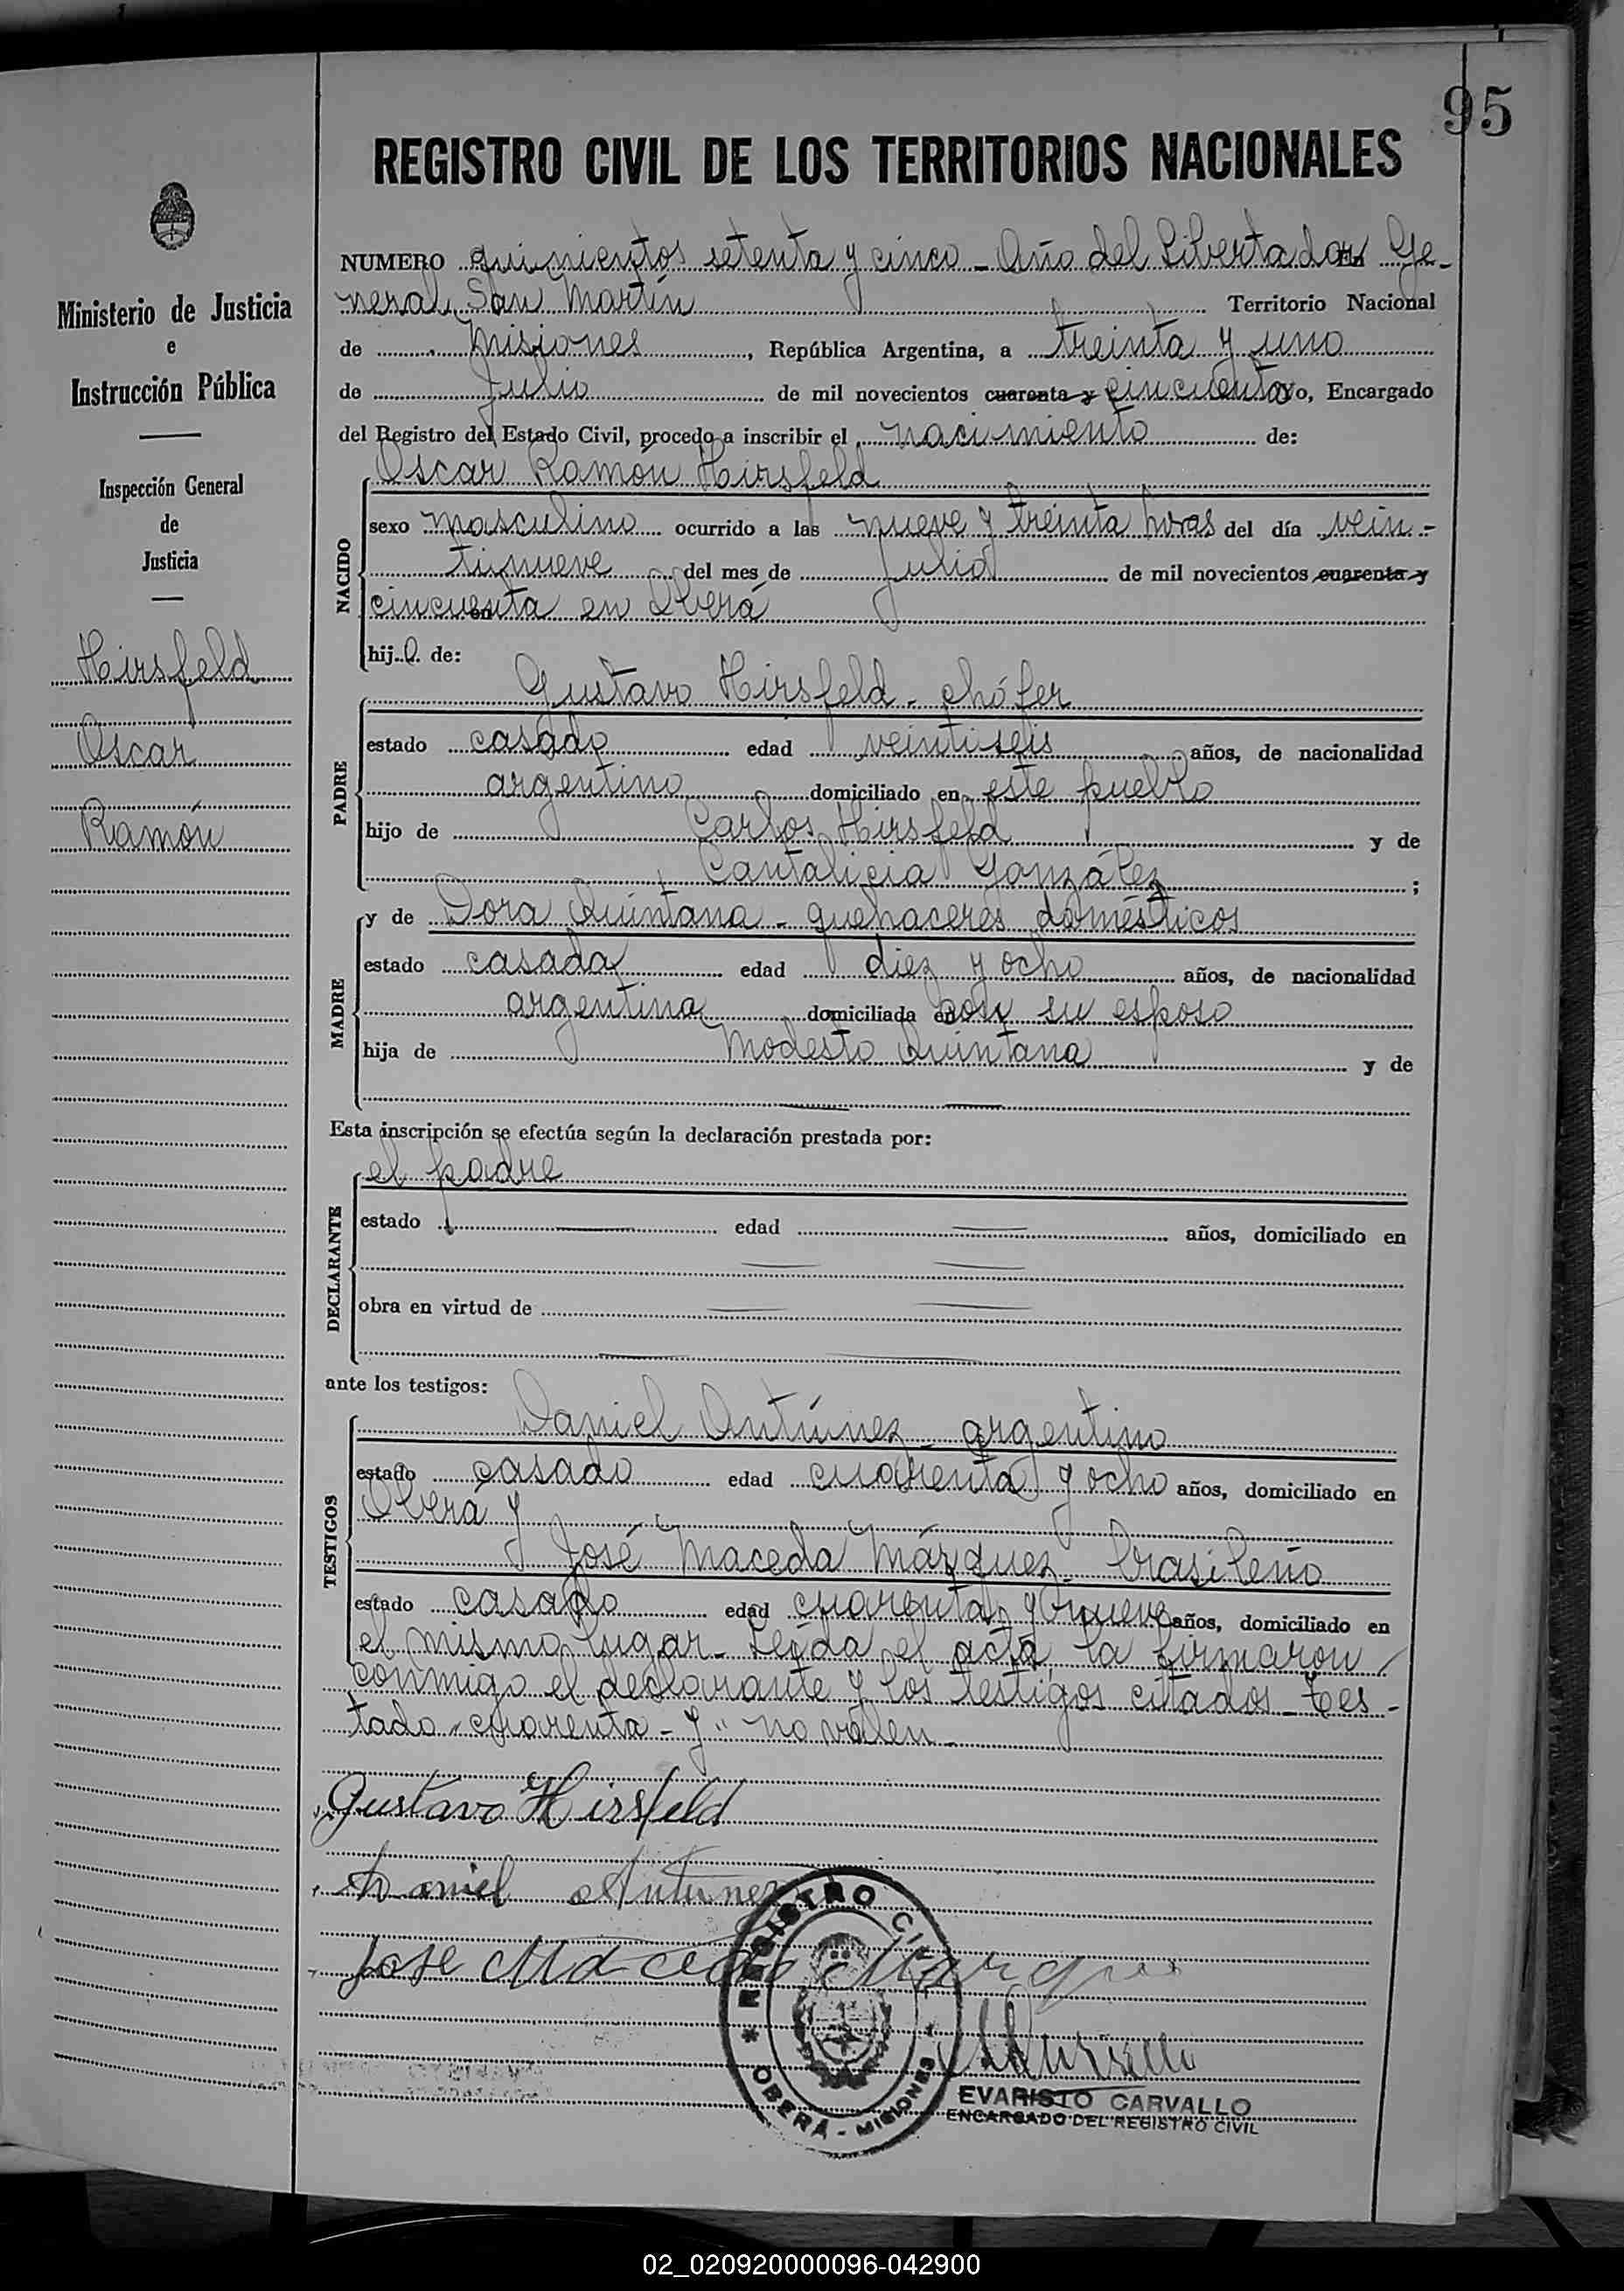 95
REGISTRO CIVIL DE LOS TERRITORIOS NACIONALES
Ministerio de Justicia
e
Instrucción Pública
Inspección General
de
Justicia
Hirsfeld
Oscar
Ramón
NUMERO quinientos setenta y cinco - Año del Libertador Ge-
neral San Martín Territorio Nacional
de Misiones, República Argentina, a treinta y uno
de Julio de mil novecientos cuarenta y cincuenta Yo, Encargado
del Registro del Estado Civil, procedo a inscribir el nacimiento de:
NACIDO
Oscar Ramón Hirsfeld
sexo masculino ocurrido a las nueve y treinta horas del día vein-
tinueve del mes de julio de mil novecientos cuarenta y
cincuenta en Oberá
hijo de:
PADRE
Gustavo Hirsfeld - chófer
estado casado edad veintiseis años, de nacionalidad
argentino domiciliado en este pueblo
hijo de Carlos Hirsfeld y de
Cantalicia González ;
MADRE
y de Dora Quintana - quehaceres domésticos
estado casada edad diez y ocho años, de nacionalidad
argentina domiciliada con su esposo
hija de Modesto Quintana y de
Esta inscripción se efectúa según la declaración prestada por:
DECLARANTE
el padre
estado edad años, domiciliado en
obra en virtud de
ante los testigos:
TESTIGOS
Daniel Antúnez - argentino
estado casado edad cuarenta y ocho años, domiciliado en
Oberá y
José Maceda Márquez - brasileño
estado casado edad cuarenta y nueve años, domiciliado en
el mismo lugar - Leída el acta, la firmaron
conmigo el declarante y los testigos citados - Tes-
tado "cuarenta - y" no valen -
Gustavo Hirsfeld
Daniel Antunez
Jose Maceda Marques
REGISTRO CIVIL
* OBERÁ - MISIONES
EVARISTO CARVALLO
ENCARGADO DEL REGISTRO CIVIL
02_020920000096-042900